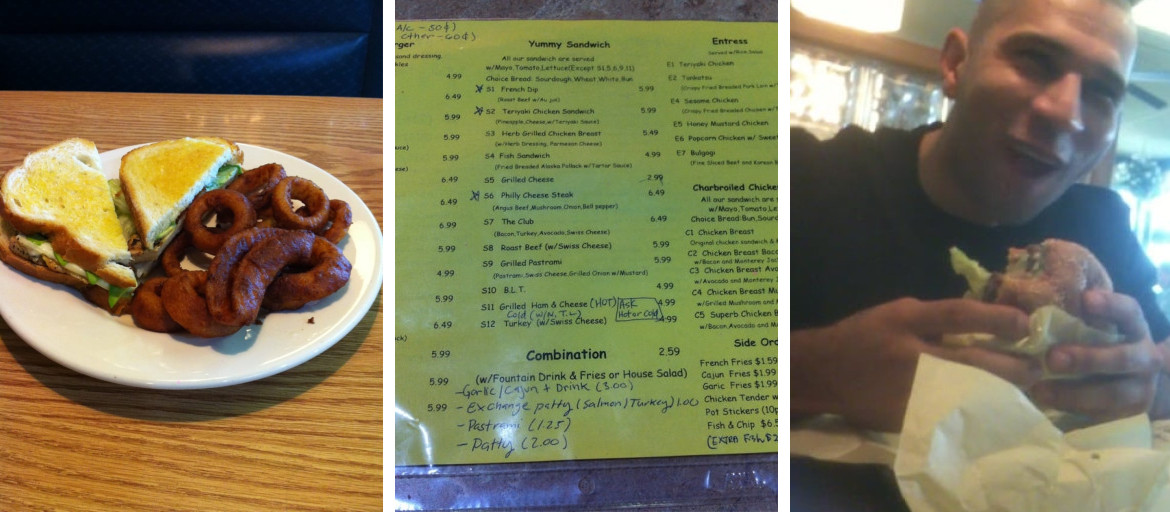 A/c - 50¢)
Other - 60¢)
rger
4.99
6.49
5.99
5.99
6.49
4.99
6.99
5.99
4.99
5.99
6.49
5.99
5.99
5.99
Yummy Sandwich
All our sandwich are served
w/Mayo,Tomato,Lettuce(Except S1,5,6,9,11)
Choice Bread: Sourdough,Wheat,White,Bun
S1 French Dip 5.99
(Roast Beef w/Au jus)
S2 Teriyaki Chicken Sandwich 5.99
(Pineapple,Cheese,w/Teriyaki Sauce)
S3 Herb Grilled Chicken Breast 5.49
(w/Herb Dressing, Parmesan Cheese)
S4 Fish Sandwich 4.99
(Fried Breaded Alaska Pollock w/Tartar Sauce)
S5 Grilled Cheese 2.99
S6 Philly Cheese Steak 6.49
(Angus Beef,Mushroom,Onion,Bell pepper)
S7 The Club 6.49
(Bacon,Turkey,Avocado,Swiss Cheese)
S8 Roast Beef (w/Swiss Cheese) 5.99
S9 Grilled Pastrami 5.99
(Pastrami,Swiss Cheese,Grilled Onion w/Mustard)
S10 B.L.T. 4.99
S11 Grilled Ham & Cheese (HOT) Ask 4.99
Cold (W/N,T,L) Hot or Cold
S12 Turkey (w/Swiss Cheese) 4.99
Combination 2.59
(w/Fountain Drink & Fries or House Salad)
- Garlic/Cajun + Drink (3.00)
- Exchange patty (Salmon/Turkey) 1.00
- Pastrami (1.25)
- Patty (2.00)
Entress
Served w/Rice
E1 Teriyaki Chicken
E2 Tonkatsu
(Crispy Fried Breaded Pork Loin w/
E4 Sesame Chicken
(Crispy Fried Breaded Chicken w/
E5 Honey Mustard Chicken
E6 Popcorn Chicken w/ Sweet
E7 Bulgogi
(Fine Sliced Beef and Korean
Charbroiled Chicke
All our sandwich are s
w/Mayo,Tomato,Le
Choice Bread:Bun,Sour
C1 Chicken Breast
Original chicken sandwich &
C2 Chicken Breast Baco
w/Bacon and Monterey Jac
C3 Chicken Breast Avo
w/Avocado and Monterey J
C4 Chicken Breast Mu
w/Grilled Mushroom and M
C5 Superb Chicken B
w/Bacon,Avocado and Mo
Side Ord
French Fries $1.59
Cajun Fries $1.99
Garic Fries $1.99
Chicken Tender w
Pot Stickers (10p
Fish & Chip $6.5
(EXTRA Fish $2